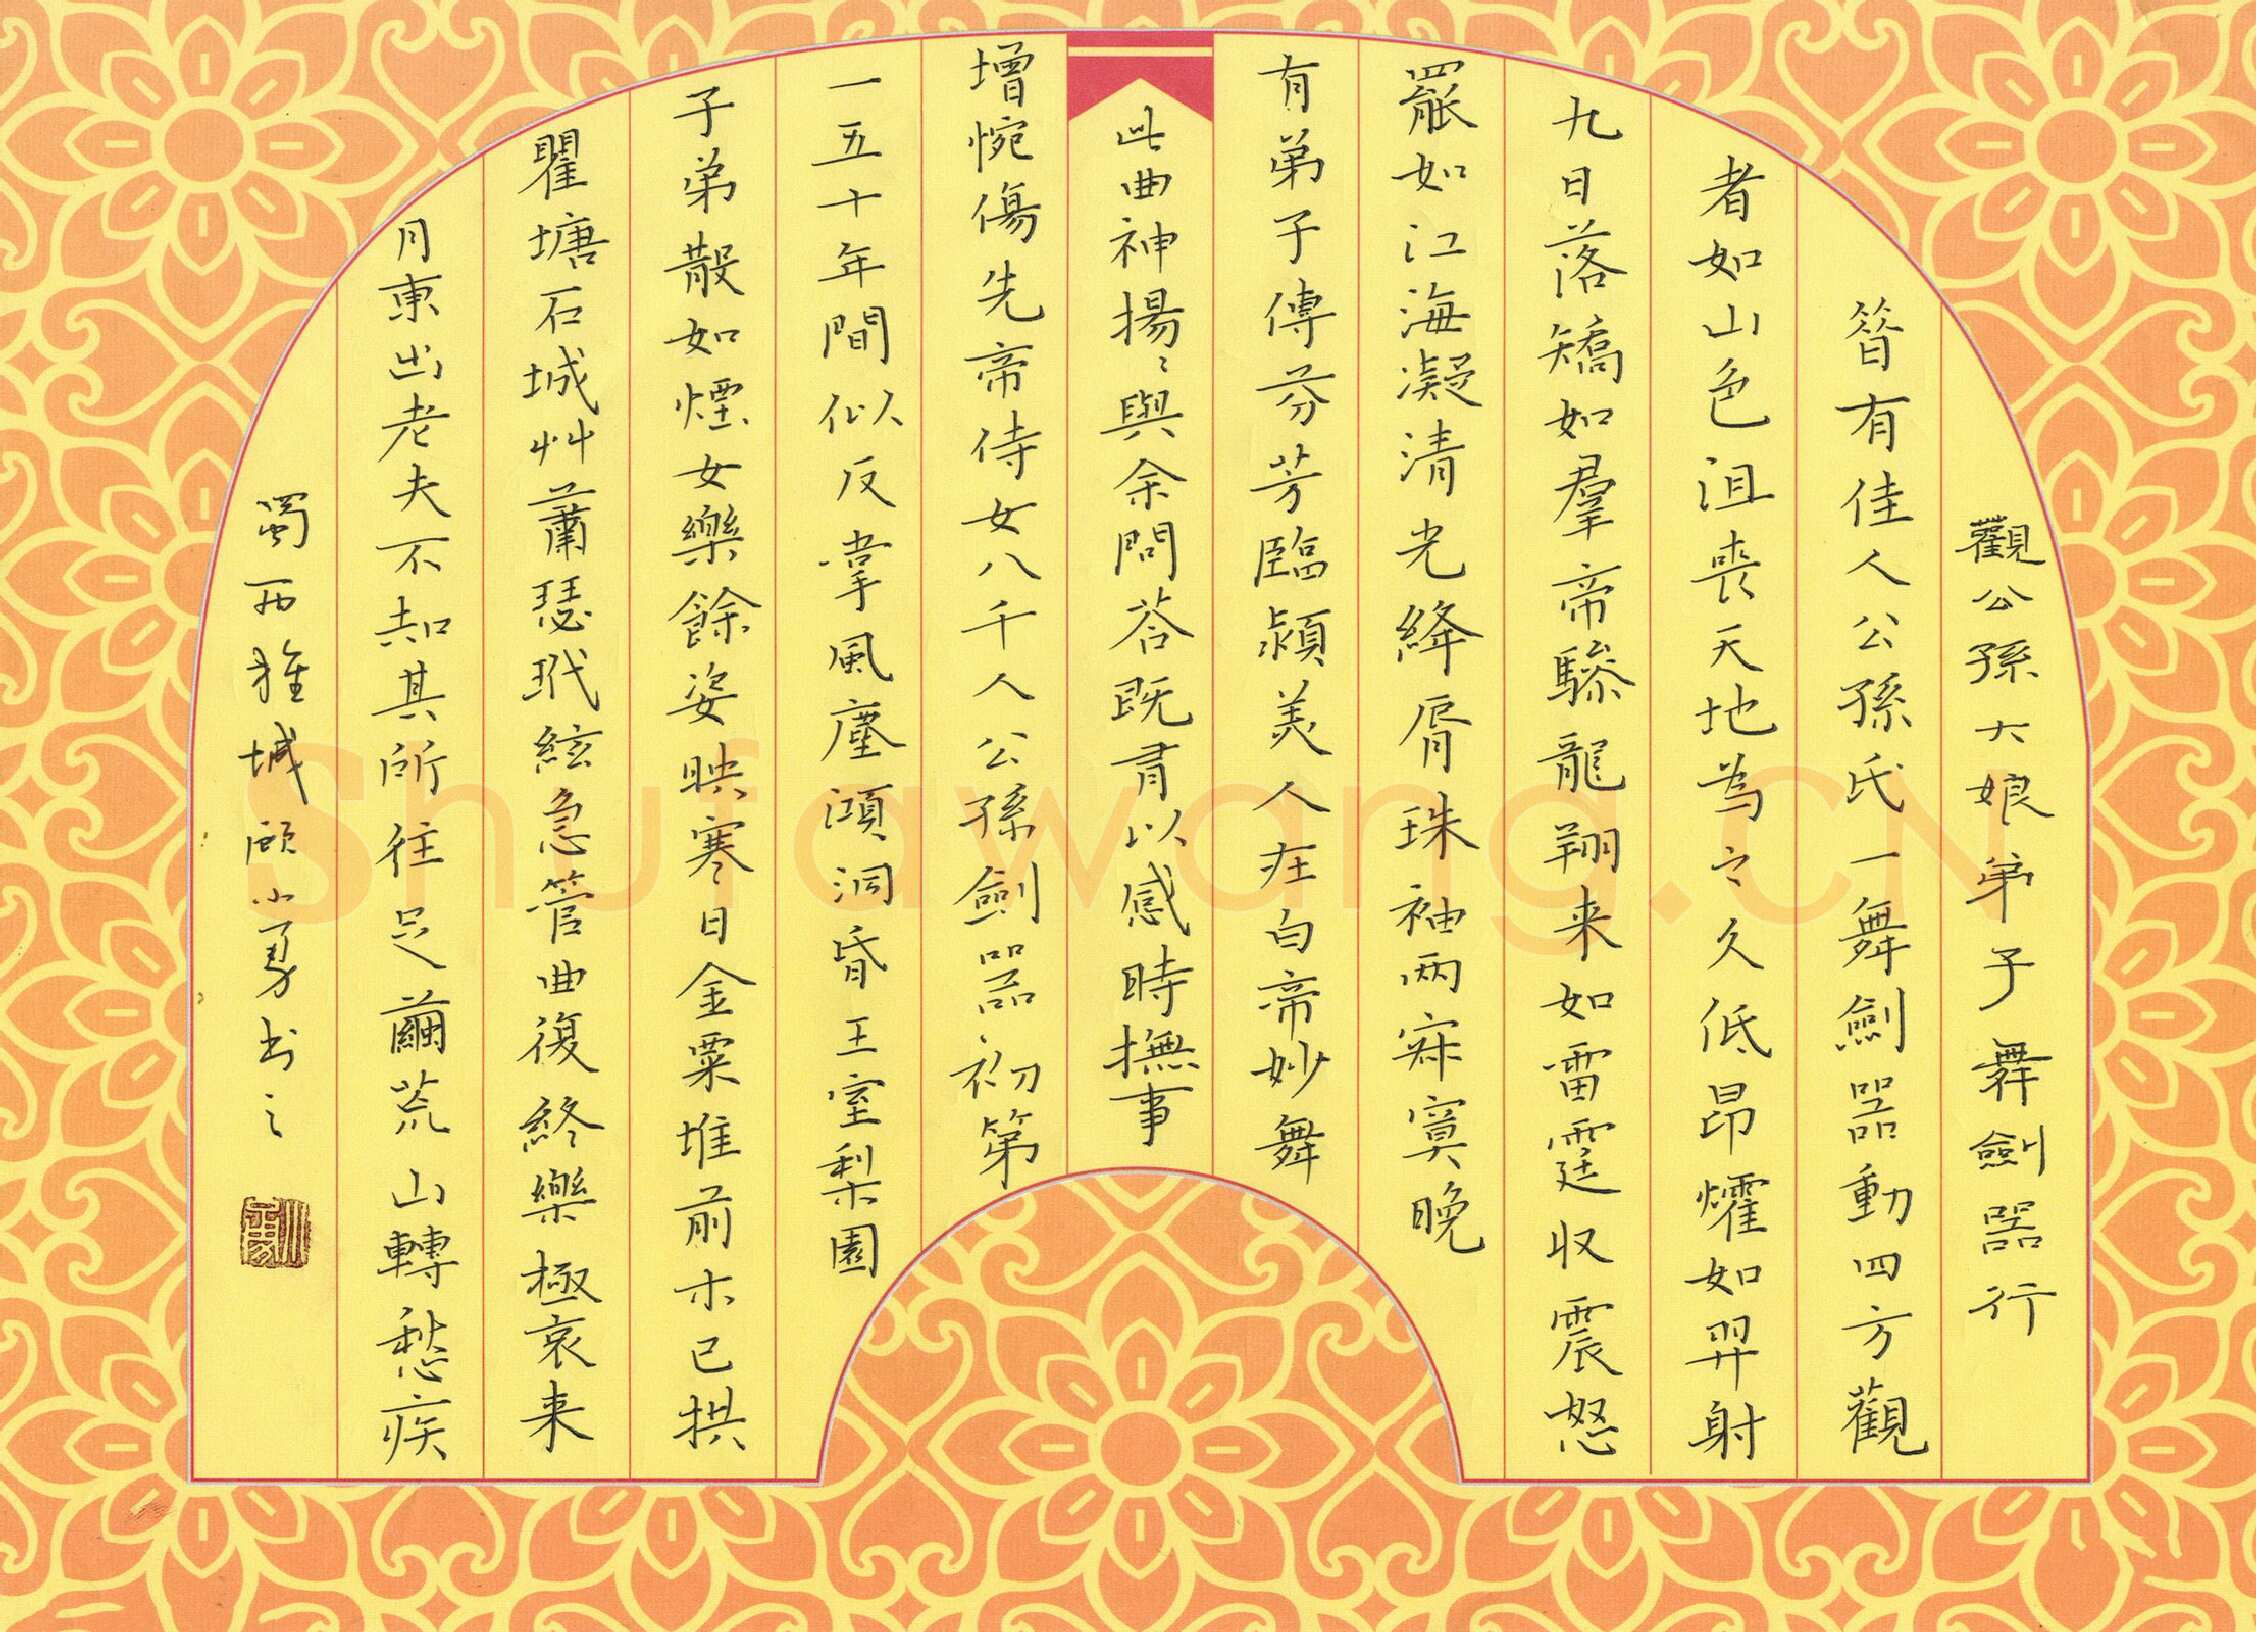 觀公孫大娘弟子舞劍器行
昔有佳人公孫氏一舞劍器動四方觀
者如山色沮喪天地為之久低昂㸌如羿射
九日落矯如羣帝驂龍翔来如雷霆収震怒
罷如江海凝清光絳脣珠袖兩寂寞晚
有弟子傳芬芳臨潁美人在白帝妙舞
此曲神揚〻與余問荅既有以感時撫事
增惋傷先帝侍女八千人公孫劍器初第
一五十年間似反掌風塵澒洞昏王室梨園
子弟散如煙女樂餘姿映寒日金粟堆前木已拱
瞿塘石城艸蕭瑟玳絃急管曲復終樂極哀来
月東出老夫不知其所往足繭荒山轉愁疾
蜀西雅城小勇书之
Shufawang.CN